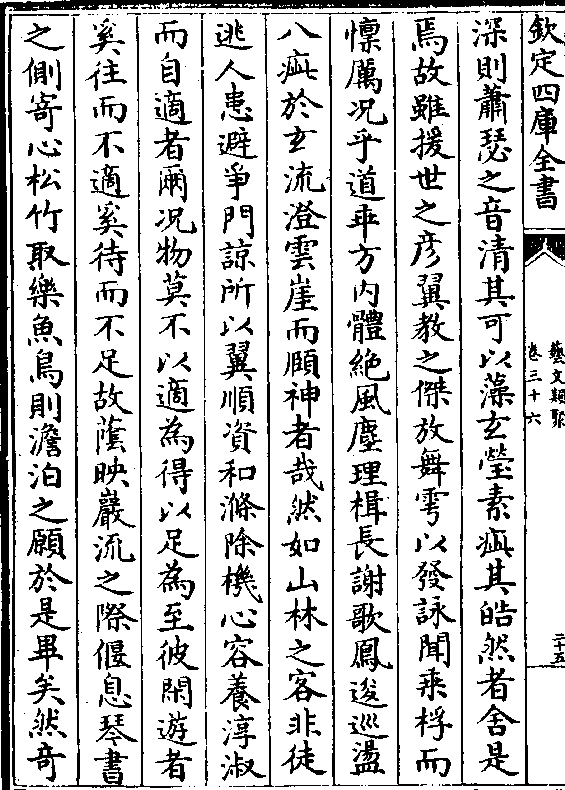 欽定四庫全書
藝文類聚
卷三十六
二十五
深則蕭瑟之音清其可以藻玄瑩素疵其皓然者舍是
焉故雖援世之彦翼教之傑放舞雩以發詠聞乗桴而
懍厲况乎道乖方内體絶風塵理楫長謝歌鳳逡巡盪
八疵於玄流澄雲崖而頤神者哉然如山林之客非徒
逃人患避爭門諒所以翼順資和滌除機心容養淳淑
而自適者爾况物莫不以適為得以足為至彼閑遊者
奚往而不適奚待而不足故蔭映巖流之際偃息琴書
之側寄心松竹取樂魚鳥則澹泊之願於是畢矣然奇